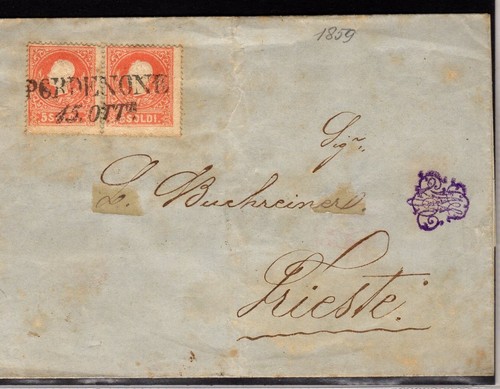 1859
PORDENONE
15. OTTRE
5 SOLDI.
Sigr.
L. Buchreiner.
Trieste.